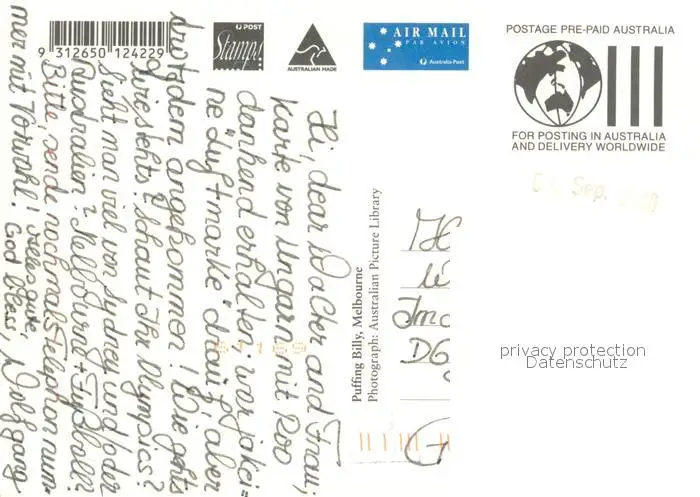 9 312650 124229
POST
Stamp!
AUSTRALIAN MADE
AIR MAIL
PAR AVION
Australia Post
POSTAGE PRE-PAID AUSTRALIA
FOR POSTING IN AUSTRALIA
AND DELIVERY WORLDWIDE
Sep.
Hi, dear Walter and Frau,
Karte von Ungarn mit Roo
dankend erhalten. war kei=
ne Luftmarke drauf, aber
trotzdem angekommen! Wie gehts
wie stehts? Schaut Ihr Olympics?
Sieht man viel von Sydney und/oder
Australien? Melbourne - Fußball?
Bitte, sende nochmals Telephon num-
mer mit Vorwahl! Alles gute,
God bless, Wolfgang
Puffing Billy, Melbourne
Photograph: Australian Picture Library
DG
G
privacy protection
Datenschutz